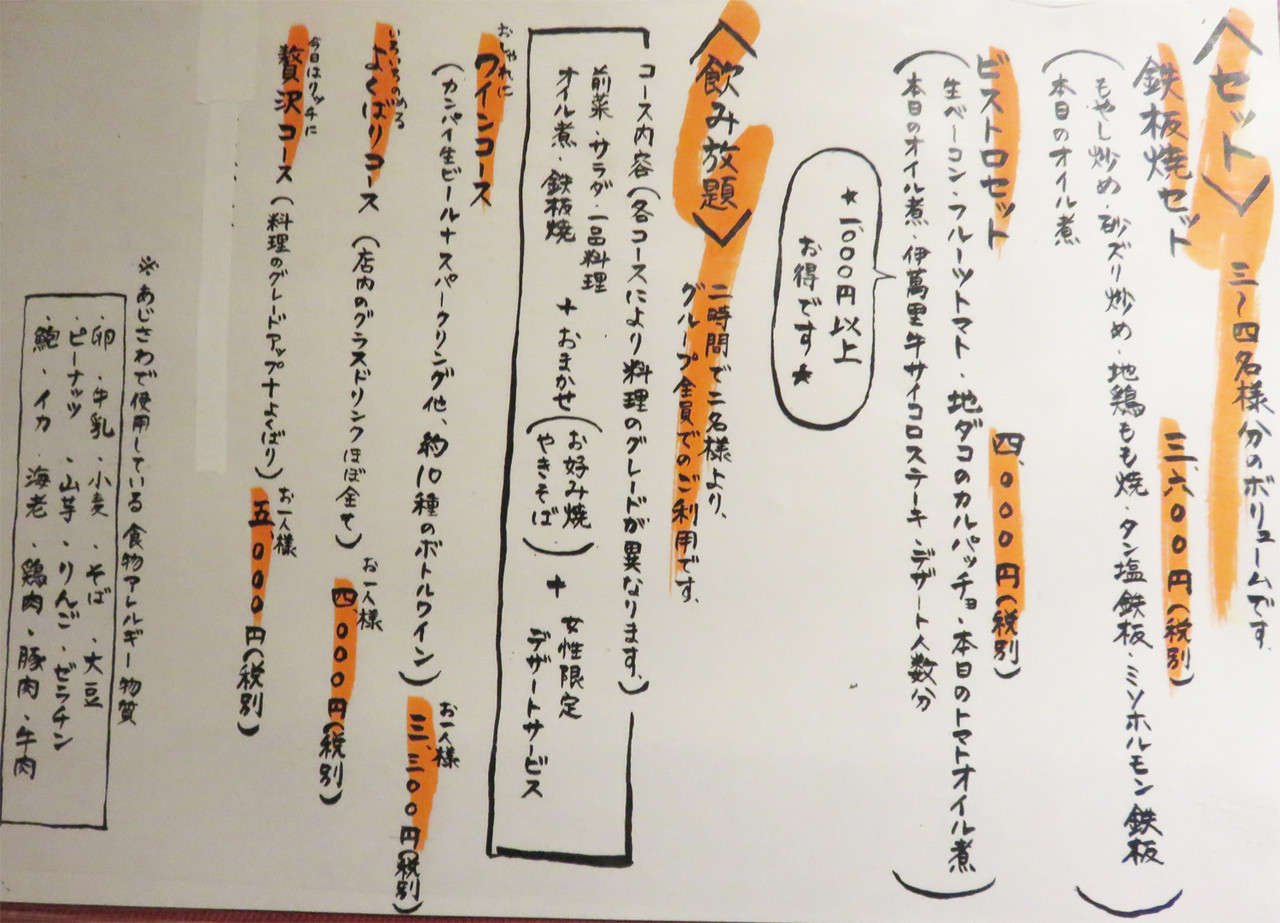 〈セット〉 三〜四名様分のボリュームです。
鉄板焼セット 三、六〇〇円(税別)
(もやし炒め・砂ズリ炒め・地鶏もも焼・タン塩鉄板・ミソホルモン鉄板
本日のオイル煮)
ビストロセット 四、〇〇〇円(税別)
(生ベーコン・フルーツトマト・地ダコのカルパッチョ・本日のトマトオイル煮
本日のオイル煮・伊萬里牛サイコロステーキ・デザート人数分)
★一、〇〇〇円以上
お得です★
〈飲み放題〉 二時間で二名様より、
グループ全員でのご利用です。
コース内容(各コースにより料理のグレードが異なります。)
前菜・サラダ・一品料理
オイル煮・鉄板焼
+おまかせ(お好み焼
やきそば)
+女性限定
デザートサービス
おしゃれに
ワインコース
(カンパイ生ビール+スパークリング他、約10種のボトルワイン)
お一人様
三、三〇〇円(税別)
いろいろのめる
よくばりコース(店内のグラスドリンクほぼ全て)
お一人様
四、〇〇〇円(税別)
今日はリッチに
贅沢コース(料理のグレードアップ+よくばり)
お一人様
五、〇〇〇円(税別)
※あじさわで使用している食物アレルギー物質
・卵・牛乳・小麦・そば・大豆
・ピーナッツ・山芋・りんご・ゼラチン
・鮑・イカ・海老・鶏肉・豚肉・牛肉